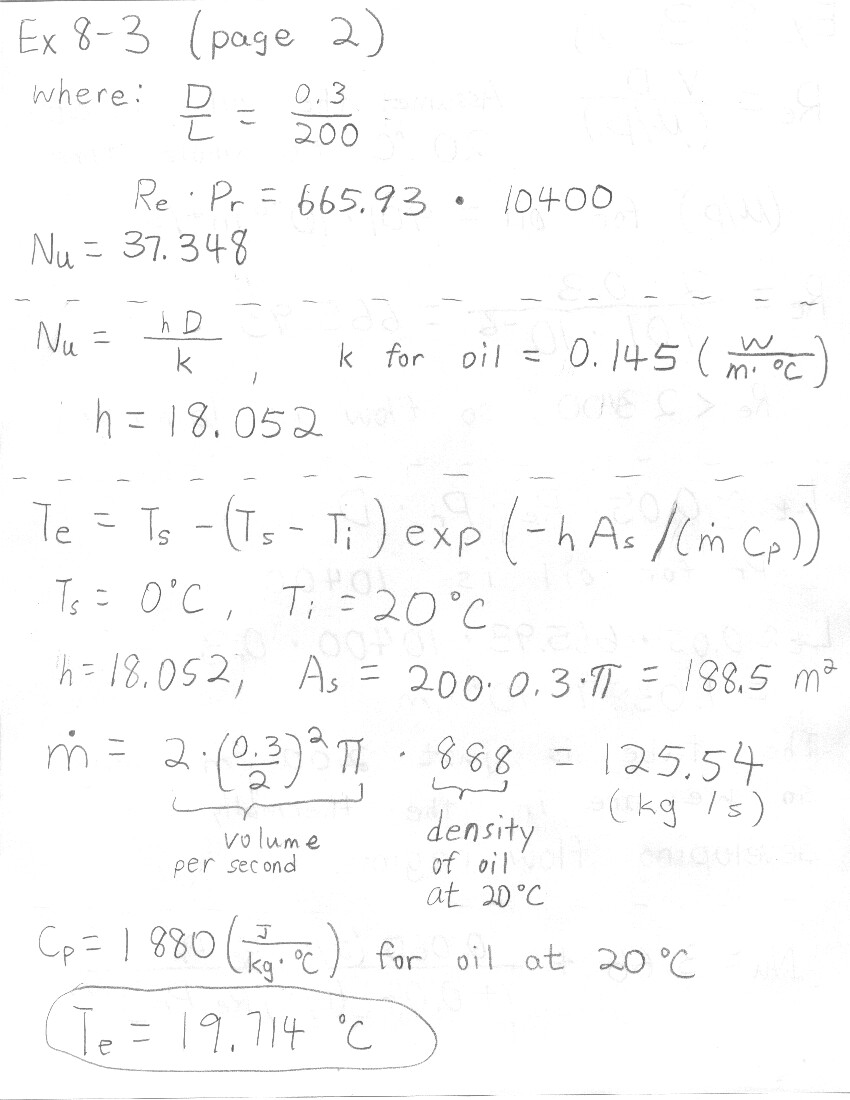 Ex 8-3 (page 2)
where: D/L = 0.3/200
Re · Pr = 665.93 · 10400
Nu = 37.348
Nu = hD/k, k for oil = 0.145 (W/m·°C)
h = 18.052
Te = Ts - (Ts - Ti) exp (-h As /(ṁ Cp))
Ts = 0°C, Ti = 20°C
h = 18.052, As = 200 · 0.3 · π = 188.5 m²
ṁ = 2 · (0.3/2)² π · 888 = 125.54
(kg /s)
volume
per second
density
of oil
at 20°C
Cp = 1 880 (J/kg·°C) for oil at 20 °C
Te = 19.714 °C